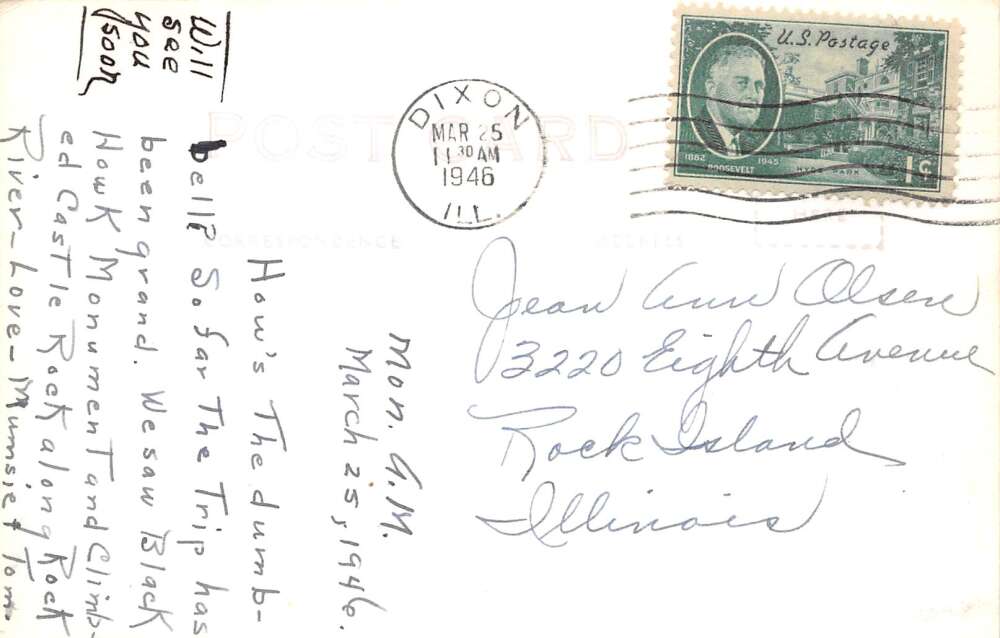 POST CARD
CORRESPONDENCE
ADDRESS
U.S. Postage
1882
1945
ROOSEVELT
HYDE PARK
1¢
DIXON
MAR 25
11 30 AM
1946
ILL.
Jean Ann Olsen
3220 Eighth Avenue
Rock Island
Illinois
Mon. A.M.
March 25, 1946.
How's The dumb-
bell? So far The Trip has
been grand. We saw Black
Hawk Monument and Climb-
ed Castle Rock along Rock
River-Love-Mumsie & Tom
Will
see
you
soon